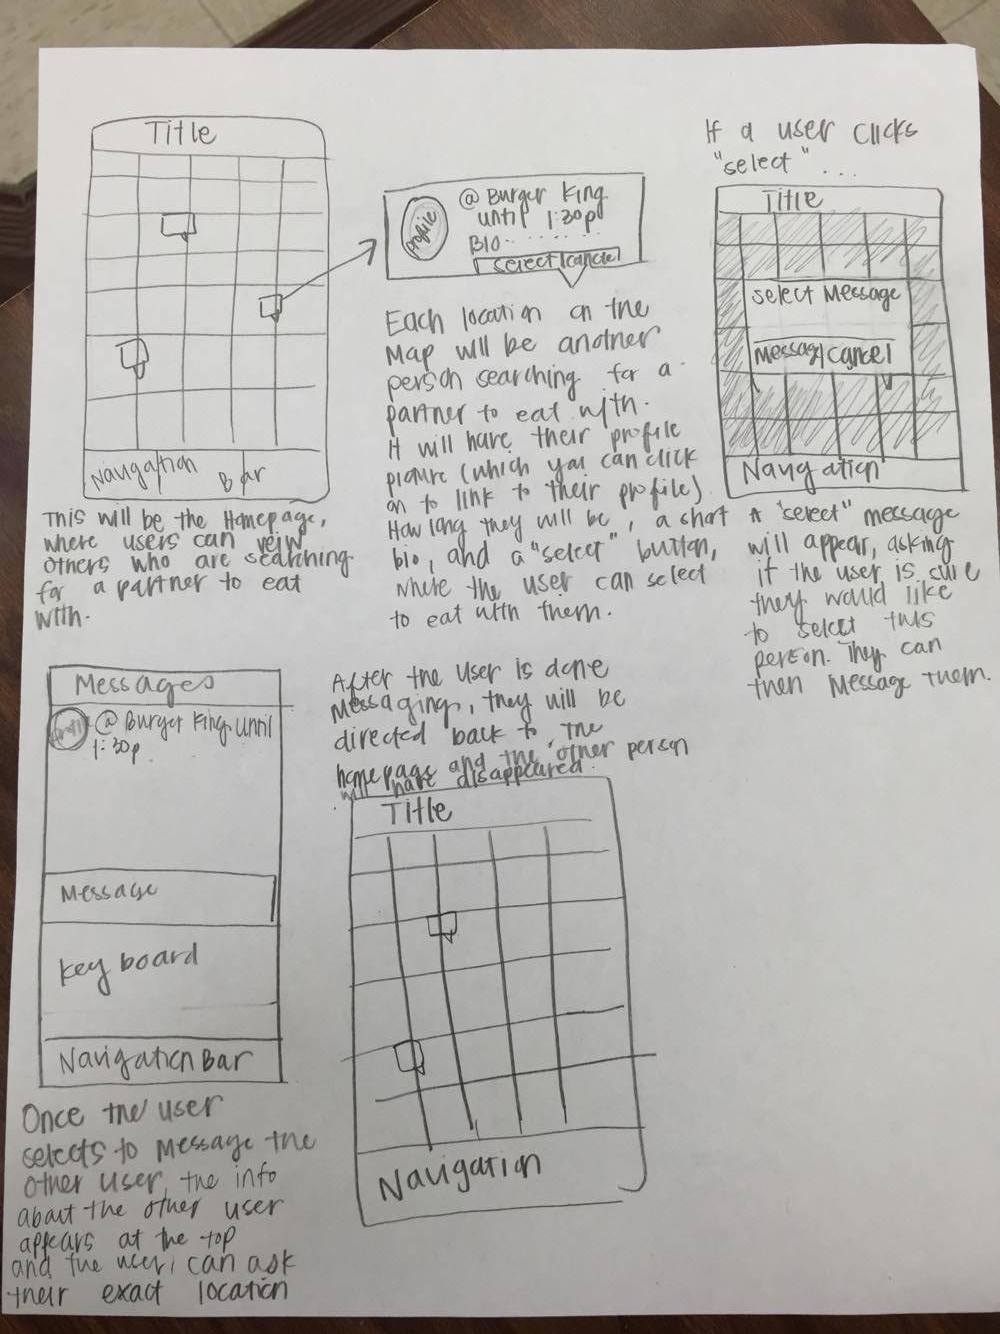 Title
Navigation Bar
This will be the Homepage,
where users can veiw
others who are searching
for a partner to eat
with.
profile
@ Burger King
until 1:30p
Bio........
select|cancel
Each location on the
Map will be another
person searching for a
partner to eat with.
It will have their profile
picture (which you can click
on to link to their profile)
How long they will be, a short
bio, and a "select" button,
where the user can select
to eat with them.
If a user clicks
"select"...
Title
Select Message
Message|cancel
Navigation
A "select" message
will appear, asking
if the user is sure
they would like
to select this
person. They can
then Message them.
Messages
profile
@ Burger King until
1:30p
Message
Keyboard
Navigation Bar
Once the user
selects to Message the
other user, the info
about the other user
appears at the top
and the user, can ask
their exact location
After the user is done
Messaging, they will be
directed back to the
homepage and the other person
will have disappeared.
Title
Navigation